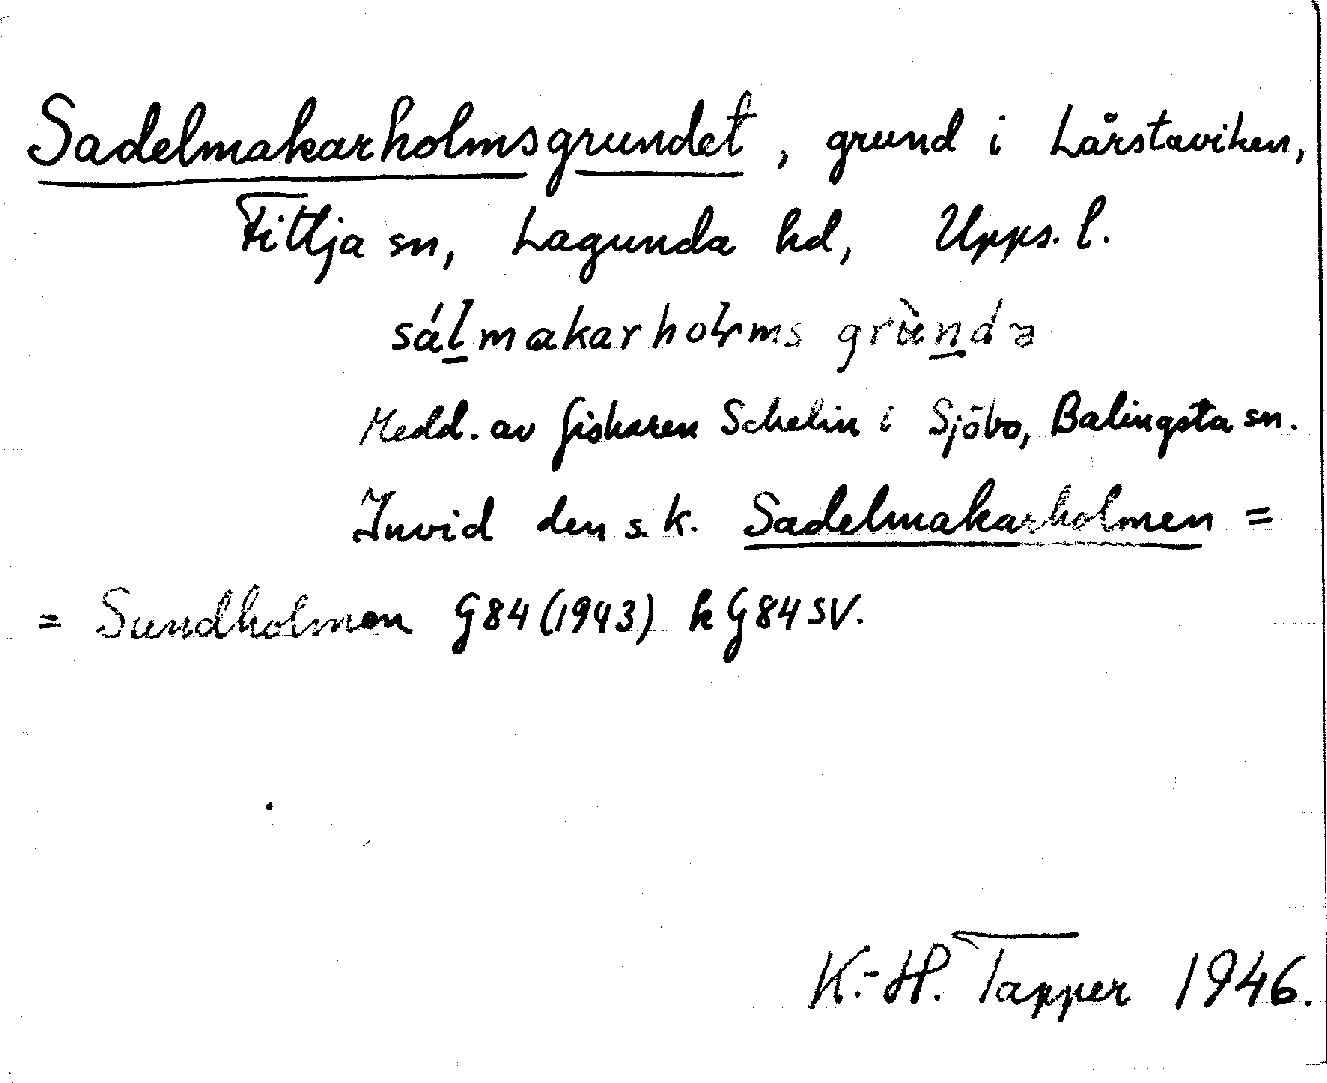 Sadelmakarholmsgrundet, grund i Lårstaviken,
Fittja sn, Lagunda hd, Upps. l.
sálmakarholms grùndə
Medd. av fiskaren Schelin i Sjöbo, Balingsta sn.
Invid den s. k. Sadelmakarholmen =
= Sundholmen G84 (1943) k G84 SV.
K.-H. Tapper 1946.